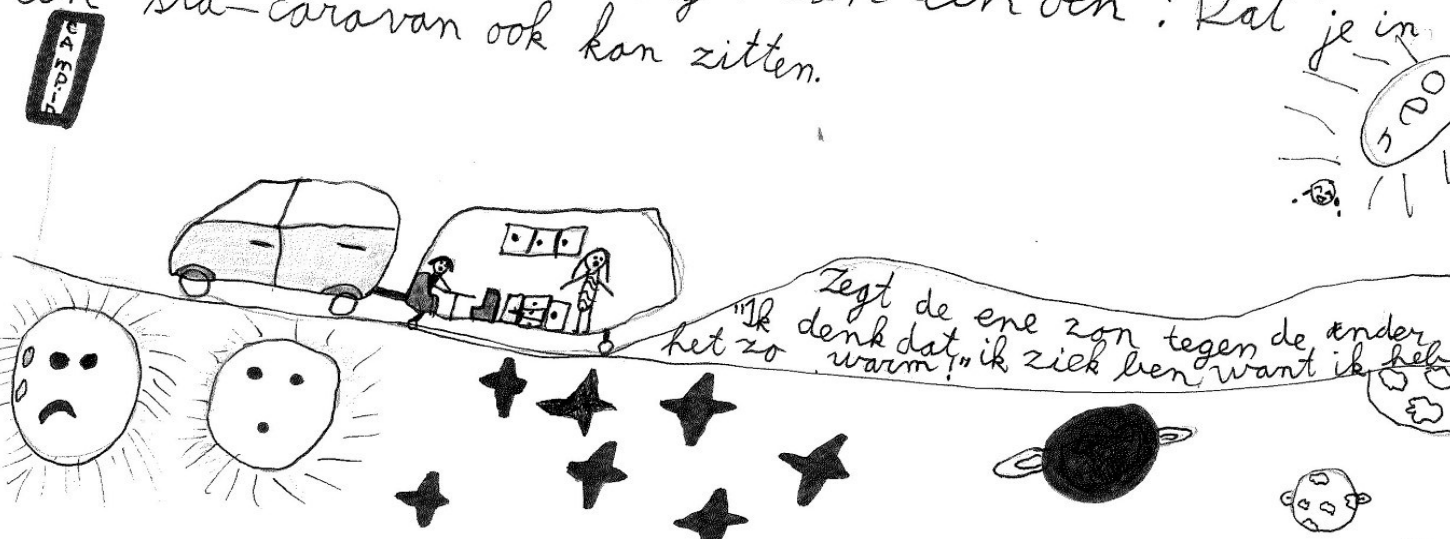 sta-caravan ook kan zitten.
je in
CAMPIN
Zegt de ene zon tegen de ander
"Ik denk dat ik ziek ben want ik heb
het zo warm!"